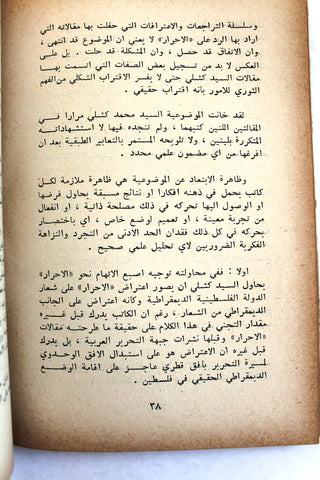 وسلسلة التراجعات والاعترافات التي حفلت بها مقالاته التي
اراد بها الرد على «الاحرار» لا يعني ان الموضوع قد انتهى ،
وان الاتفاق قد حصل ، وان المشكلة قد حلت . بل على
العكس لا بد من تسجيل بعض الصفات التي اتسمت بها
مقالات السيد كشلي حتى لا يفسر الاقتراب الشكلي من الفهم
الثوري للامور بانه اقتراب حقيقي .
لقد خانت الموضوعية السيد محمد كشلي مرارا في
المقالتين اللتين كتبهما ، ولم تنجده فيها لا استشهاداته
المتكررة بلينين ، ولا تلويحه المستمر بالتعابير الطبقية بعد ان
افرغها من أي مضمون علمي محدد .
وظاهرة الابتعاد عن الموضوعية هي ظاهرة ملازمة لكل
كاتب يحمل في ذهنه افكارا او نتائج مسبقة يحاول فرضها
او الوصول اليها تحركه في ذلك مصلحة ذاتية ، او انفعال
من تجربة معينة ، او تعميم لوضع خاص ، اي باختصار
يحركه في كل ذلك فقدان الحد الادنى من التجرد والنزاهة
الفكرية الضروريين لاي تحليل علمي صحيح .
اولا : ففي محاولته توجيه اصبع الاتهام نحو «الاحرار»
يحاول السيد كشلي ان يصور اعتراض «الاحرار» على شعار
الدولة الفلسطينية الديمقراطية وكانه اعتراض على الجانب
الديمقراطي من الشعار ، رغم ان الكاتب يدرك قبل غيره
مقدار التجني في هذا الكلام على حقيقة ما طرحته مقالات
«الاحرار» وقبلها نشرات جبهة التحرير العربية ، بل يدرك
قبل غيره ان الاعتراض هو على استبدال الافق الوحدوي
لمسيرة التحرير بافق قطري عاجز على اقامة الوضع
الديمقراطي الحقيقي في فلسطين .
٣٨